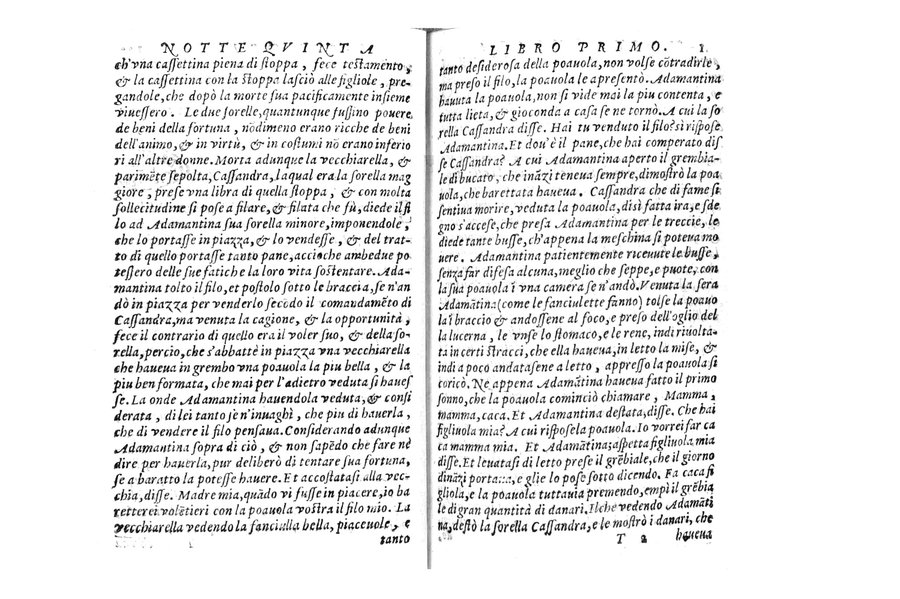 NOTTE QVINTA
ch'vna cassettina piena di stoppa, fece testamento,
& la cassettina con la stoppa lasciò alle figliole, pre-
gandole, che dopò la morte sua pacificamente insieme
viuessero. Le due sorelle, quantunque fussino pouere
de beni della fortuna, nōdimeno erano ricche de beni
dell'animo, & in virtù, & in costumi nō erano inferio
ri all'altre donne. Morta adunque la vecchiarella, &
parimēte sepolta, Cassandra, laqual era la sorella mag
giore, prese vna libra di quella stoppa, & con molta
sollecitudine si pose a filare, & filata che fù, diede il fi
lo ad Adamantina sua sorella minore, imponendole,
che lo portasse in piazza, & lo vendesse, & del trat-
to di quello portasse tanto pane, accioche ambedue po
tessero delle sue fatiche la loro vita sostentare. Ada-
mantina tolto il filo, et postolo sotto le braccia, se n'an
dò in piazza per venderlo secōdo il comandamēto di
Cassandra, ma venuta la cagione, & la opportunità,
fece il contrario di quello era il voler suo, & della so-
rella, percio, che s'abbattè in piazza vna vecchiarella
che haueua in grembo vna poauola la piu bella, & la
piu ben formata, che mai per l'adietro veduta si haues
se. La onde Adamantina hauendola veduta, & consi
derata, di lei tanto se n'inuaghì, che piu di hauerla,
che di vendere il filo pensaua. Considerando adunque
Adamantina sopra di ciò, & non sapēdo che fare nè
dire per hauerla, pur deliberò di tentare sua fortuna,
se a baratto la potesse hauere. Et accostatasi alla vec-
chia, disse. Madre mia, quādo vi fusse in piacere, io ba
ratterei volētieri con la poauola vostra il filo mio. La
vecchiarella vedendo la fanciulla bella, piaceuole, e
tanto
LIBRO PRIMO. 1
tanto desiderosa della poauola, non volse cōtradirle,
ma preso il filo, la poauola le apresentò. Adamantina
hauuta la poauola, non si vide mai la piu contenta, e
tutta lieta, & gioconda a casa se ne tornò. A cui la so
rella Cassandra disse. Hai tu venduto il filo? sì rispose
Adamantina. Et dou'è il pane, che hai comperato dis
se Cassandra? A cui Adamantina aperto il grembia-
le di bucato, che ināzi teneua sempre, dimostrò la poa
uola, che barettata haueua. Cassandra che di fame si
sentiua morire, veduta la poauola, di sì fatta ira, e sde
gno s'accese, che presa Adamantina per le treccie, le
diede tante busse, ch'appena la meschina si poteua mo
uere. Adamantina patientemente riceuute le busse,
senza far difesa alcuna, meglio che seppe, e puote, con
la sua poauola ī vna camera se n'andò. Venuta la sera
Adamātina (come le fanciulette fanno) tolse la poauo
la ī braccio & andossene al foco, e preso dell'oglio del
la lucerna, le vnse lo stomaco, e le rene, indi riuolta-
ta in certi stracci, che ella haueua, in letto la mise, &
indi a poco andatasene a letto, appresso la poauola si
coricò. Ne appena Adamātina haueua fatto il primo
sonno, che la poauola cominciò chiamare, Mamma,
mamma, caca. Et Adamantina destata, disse. Che hai
figliuola mia? A cui rispose la poauola. Io vorrei far ca
ca mamma mia. Et Adamātina; aspetta figliuola mia
disse. Et leuatasi di letto prese il grēbiale, che il giorno
dināzi portaua, e glie lo pose sotto dicendo. Fa caca fi
gliola, e la poauola tuttauia premendo, empì il grēbia
le di gran quantità di danari. Ilche vedendo Adamāti
na, destò la sorella Cassandra, e le mostrò i danari, che
T 2 haueua